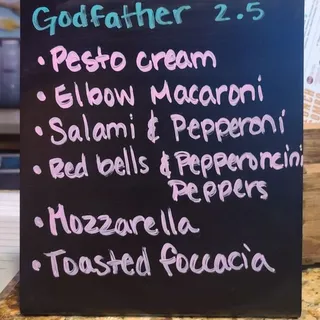 Godfather 2.5
• Pesto cream
• Elbow Macaroni
• Salami & Pepperoni
• Red bells & Pepperoncini
Peppers
• Mozzarella
• Toasted foccacia